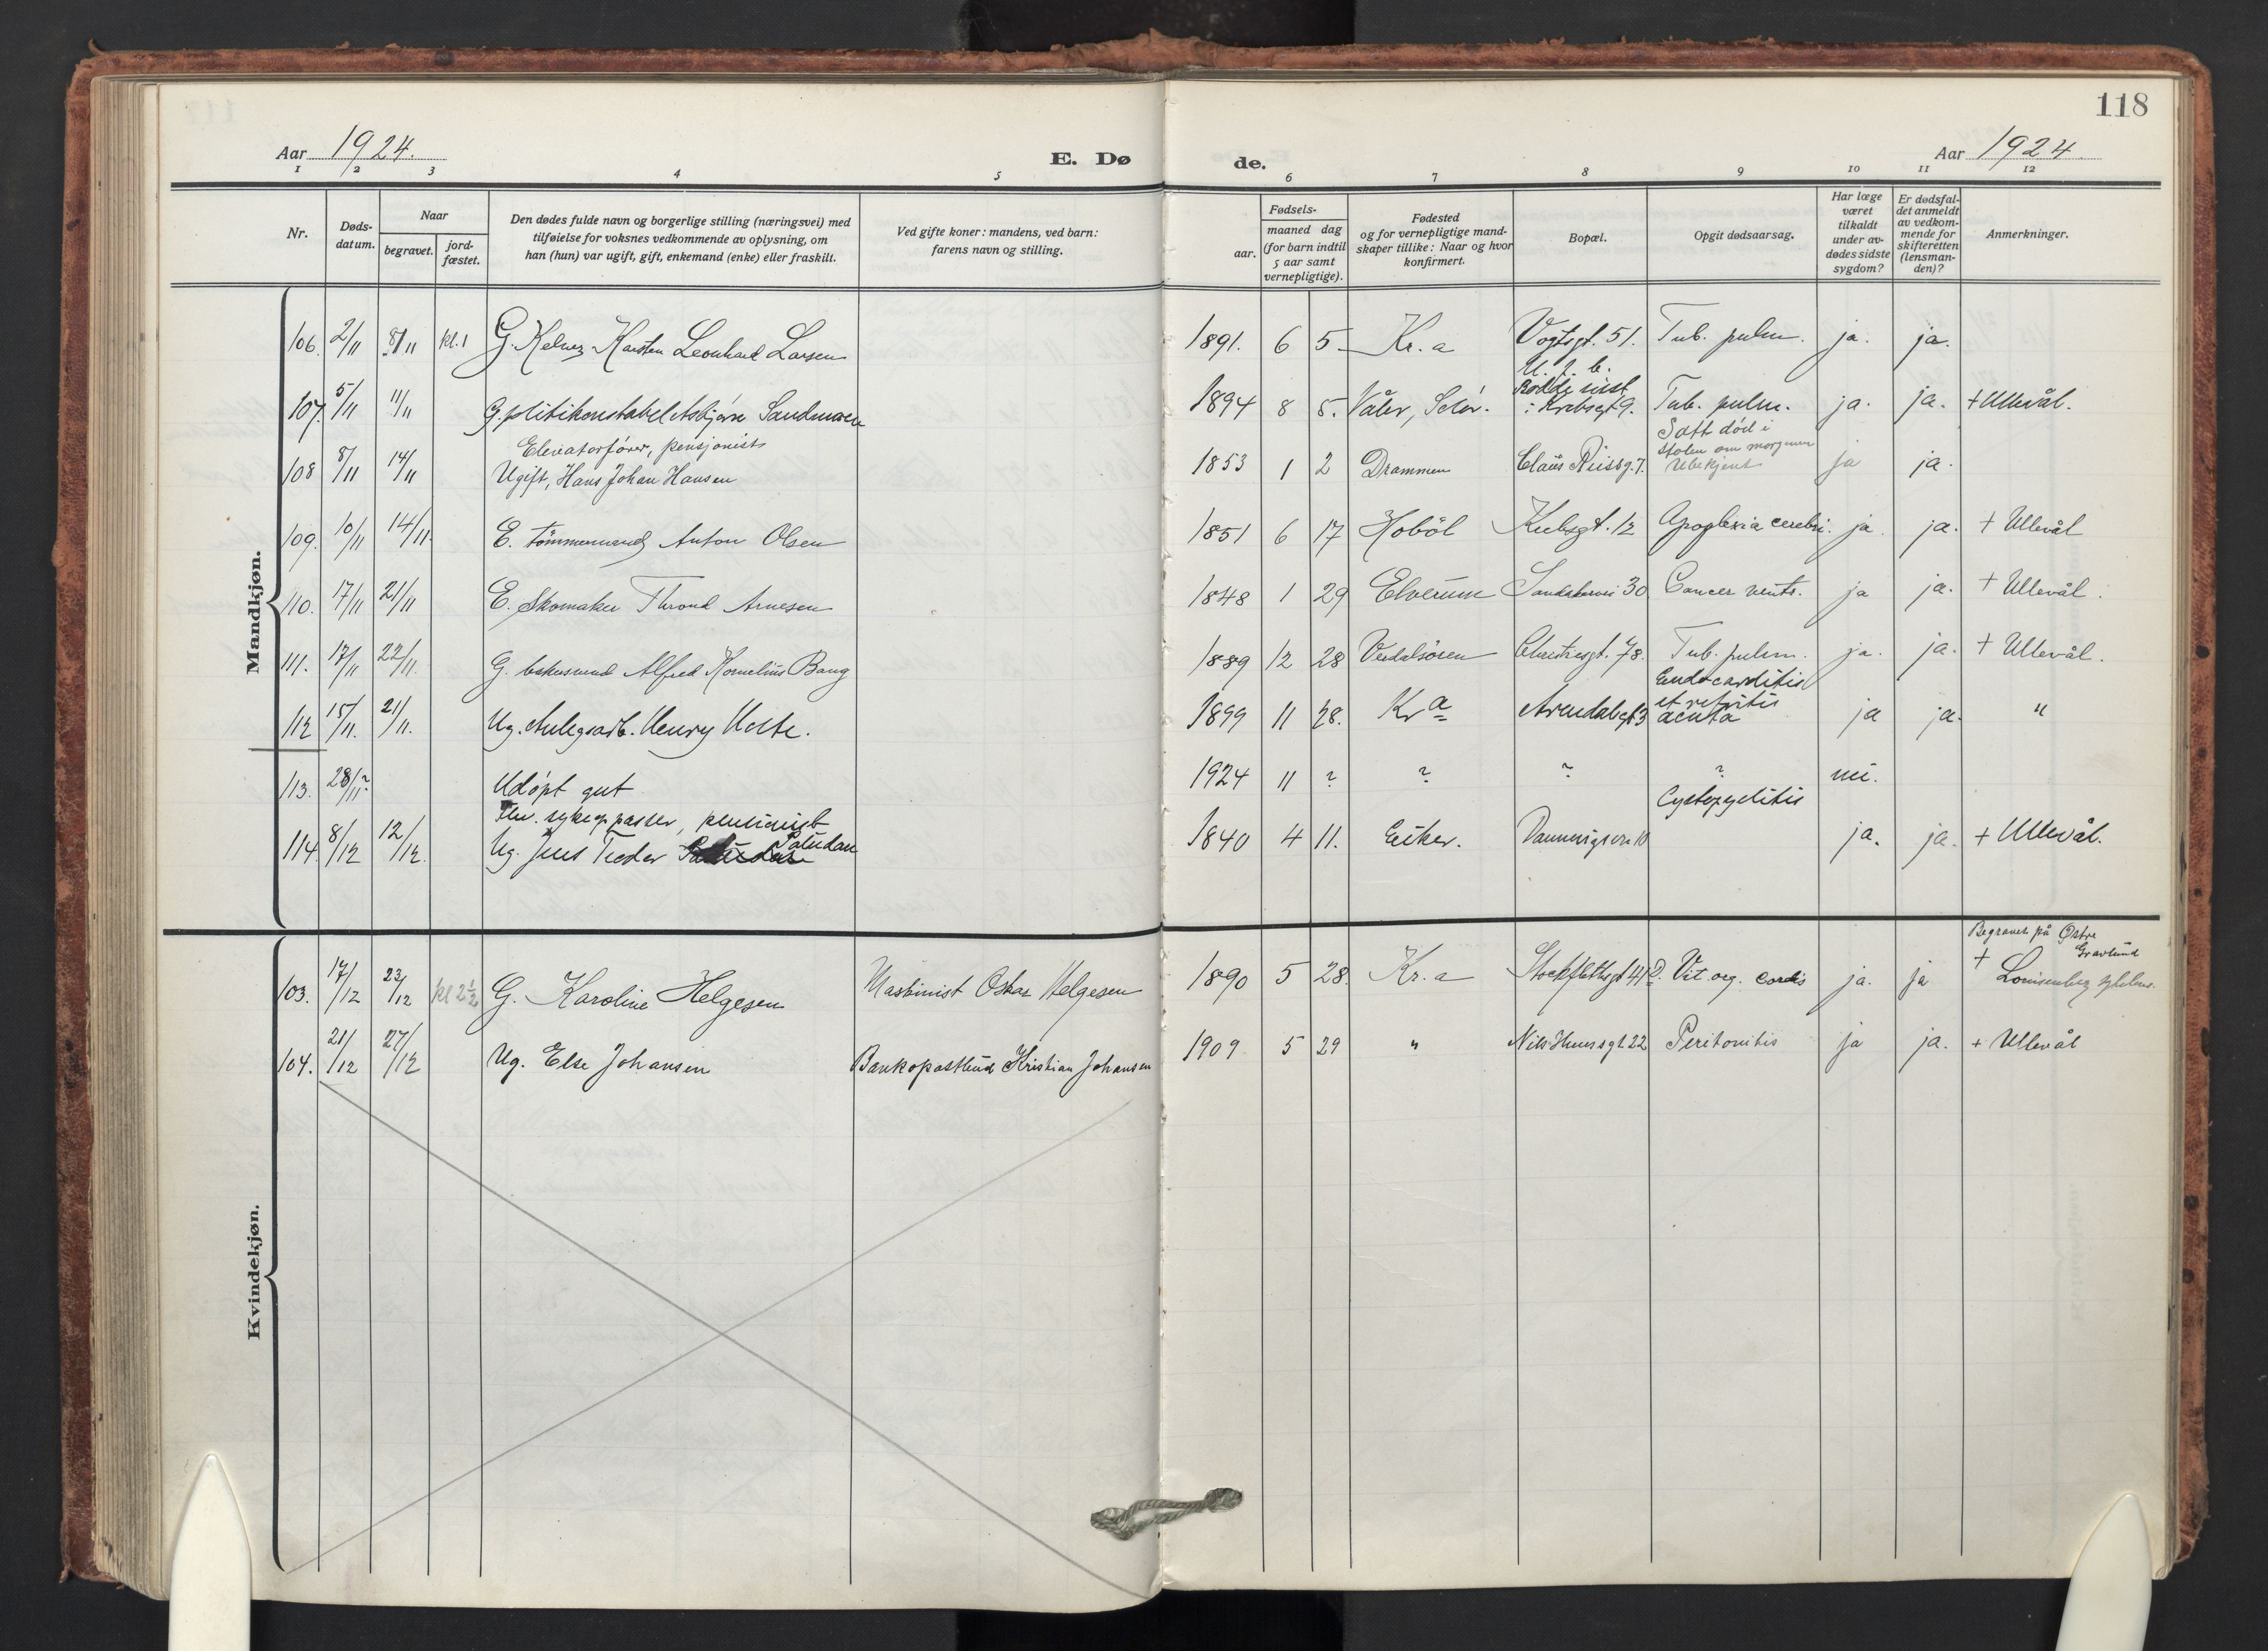 118
Aar 1924.
E. Døde.
Aar 1924.
1 2 3 4 5 6 7 8 9 10 11 12
Nr.
Døds-
datum.
Naar
begravet.
jord-
fæstet.
Den dødes fulde navn og borgerlige stilling (næringsvei) med
tilføielse for voksnes vedkommende av oplysning, om
han (hun) var ugift, gift, enkemand (enke) eller fraskilt.
Ved gifte koner: mandens, ved barn:
farens navn og stilling.
Fødsels-
aar.
maaned dag
(for barn indtil
5 aar samt
vernepligtige).
Fødested
og for vernepligtige mand-
skaper tillike: Naar og hvor
konfirmert.
Bopæl.
Opgit dødsaarsag.
Har læge
været
tilkaldt
under av-
dødes sidste
sygdom?
Er dødsfal-
det anmeldt
av vedkom-
mende for
skifteretten
(lensman-
den)?
Anmerkninger.
Mandkjøn.
106. 2/11 8/11 kl. 1 G. Kelner Karsten Leonhard Larsen 1891. 6 5 Kr.a Vogtsgt. 51. Tub. pulm. ja. ja.
107. 5/11 11/11 G. politikonstabel Asbjørn Sandmoen 1894 8 5. Våler, Solør. : Krebsgt 9. Tub. pulm. ja. ja. + Ullevål.
Elevatorfører, pensjonist Satt død i
stolen om morgenen
108 8/11 14/11 Ugift, Hans Johan Hansen 1853 1 2 Drammen Claus Riissg. 7. Ubekjent ja ja.
109. 10/11 14/11. E. tømmermand Anton Olsen 1851 6 17 Hobøl 12 Apoplexia cerebri. ja. ja. + Ullevål
110. 17/11 21/11 E. Skomaker Thrond Arnesen 1848 1 29 Elverum Sandakervei 30 Cancer ventr. ja ja. + Ullevål.
111. 17/11 22/11. G. Alfred Kornelius Bang 1889 12 28 Verdalsøren Christiesgt. 78. Tub. pulm. ja. ja. + Ullevål.
Endocarditis
et
112 15/11. 21/11. Ug. Anlegsarb. Henry Holte. 1899 11 28. Kra Arendalsgt 3 acuta ja ja. "
113. 28/11? Udøpt gut 1924 11 ? ? ? ? nei.
Fhv. sykepasser, pensionist Cystopyelitis
114. 8/12 12/12. Ug. Jens Teodor Paludan 1840 4 11. Eiker. Dannevigsvn 10 ja. ja. + Ullevål.
Kvindekjøn.
Begravet på Østre
Gravlund
103. 17/12 23/12 kl 2 1/2 G. Karoline Helgesen Maskinist Oskar Helgesen 1890 5 28. Kr.a Stockflethsgt 41 D. Vit. org. cordis ja. ja + Lovisenberg sykehus.
104. 21/12 27/12 Ug. Else Johansen Bankopasthud Kristian Johansen 1909 5 29 " Nils Huusgt 22 Peritonitis ja ja. + Ullevål